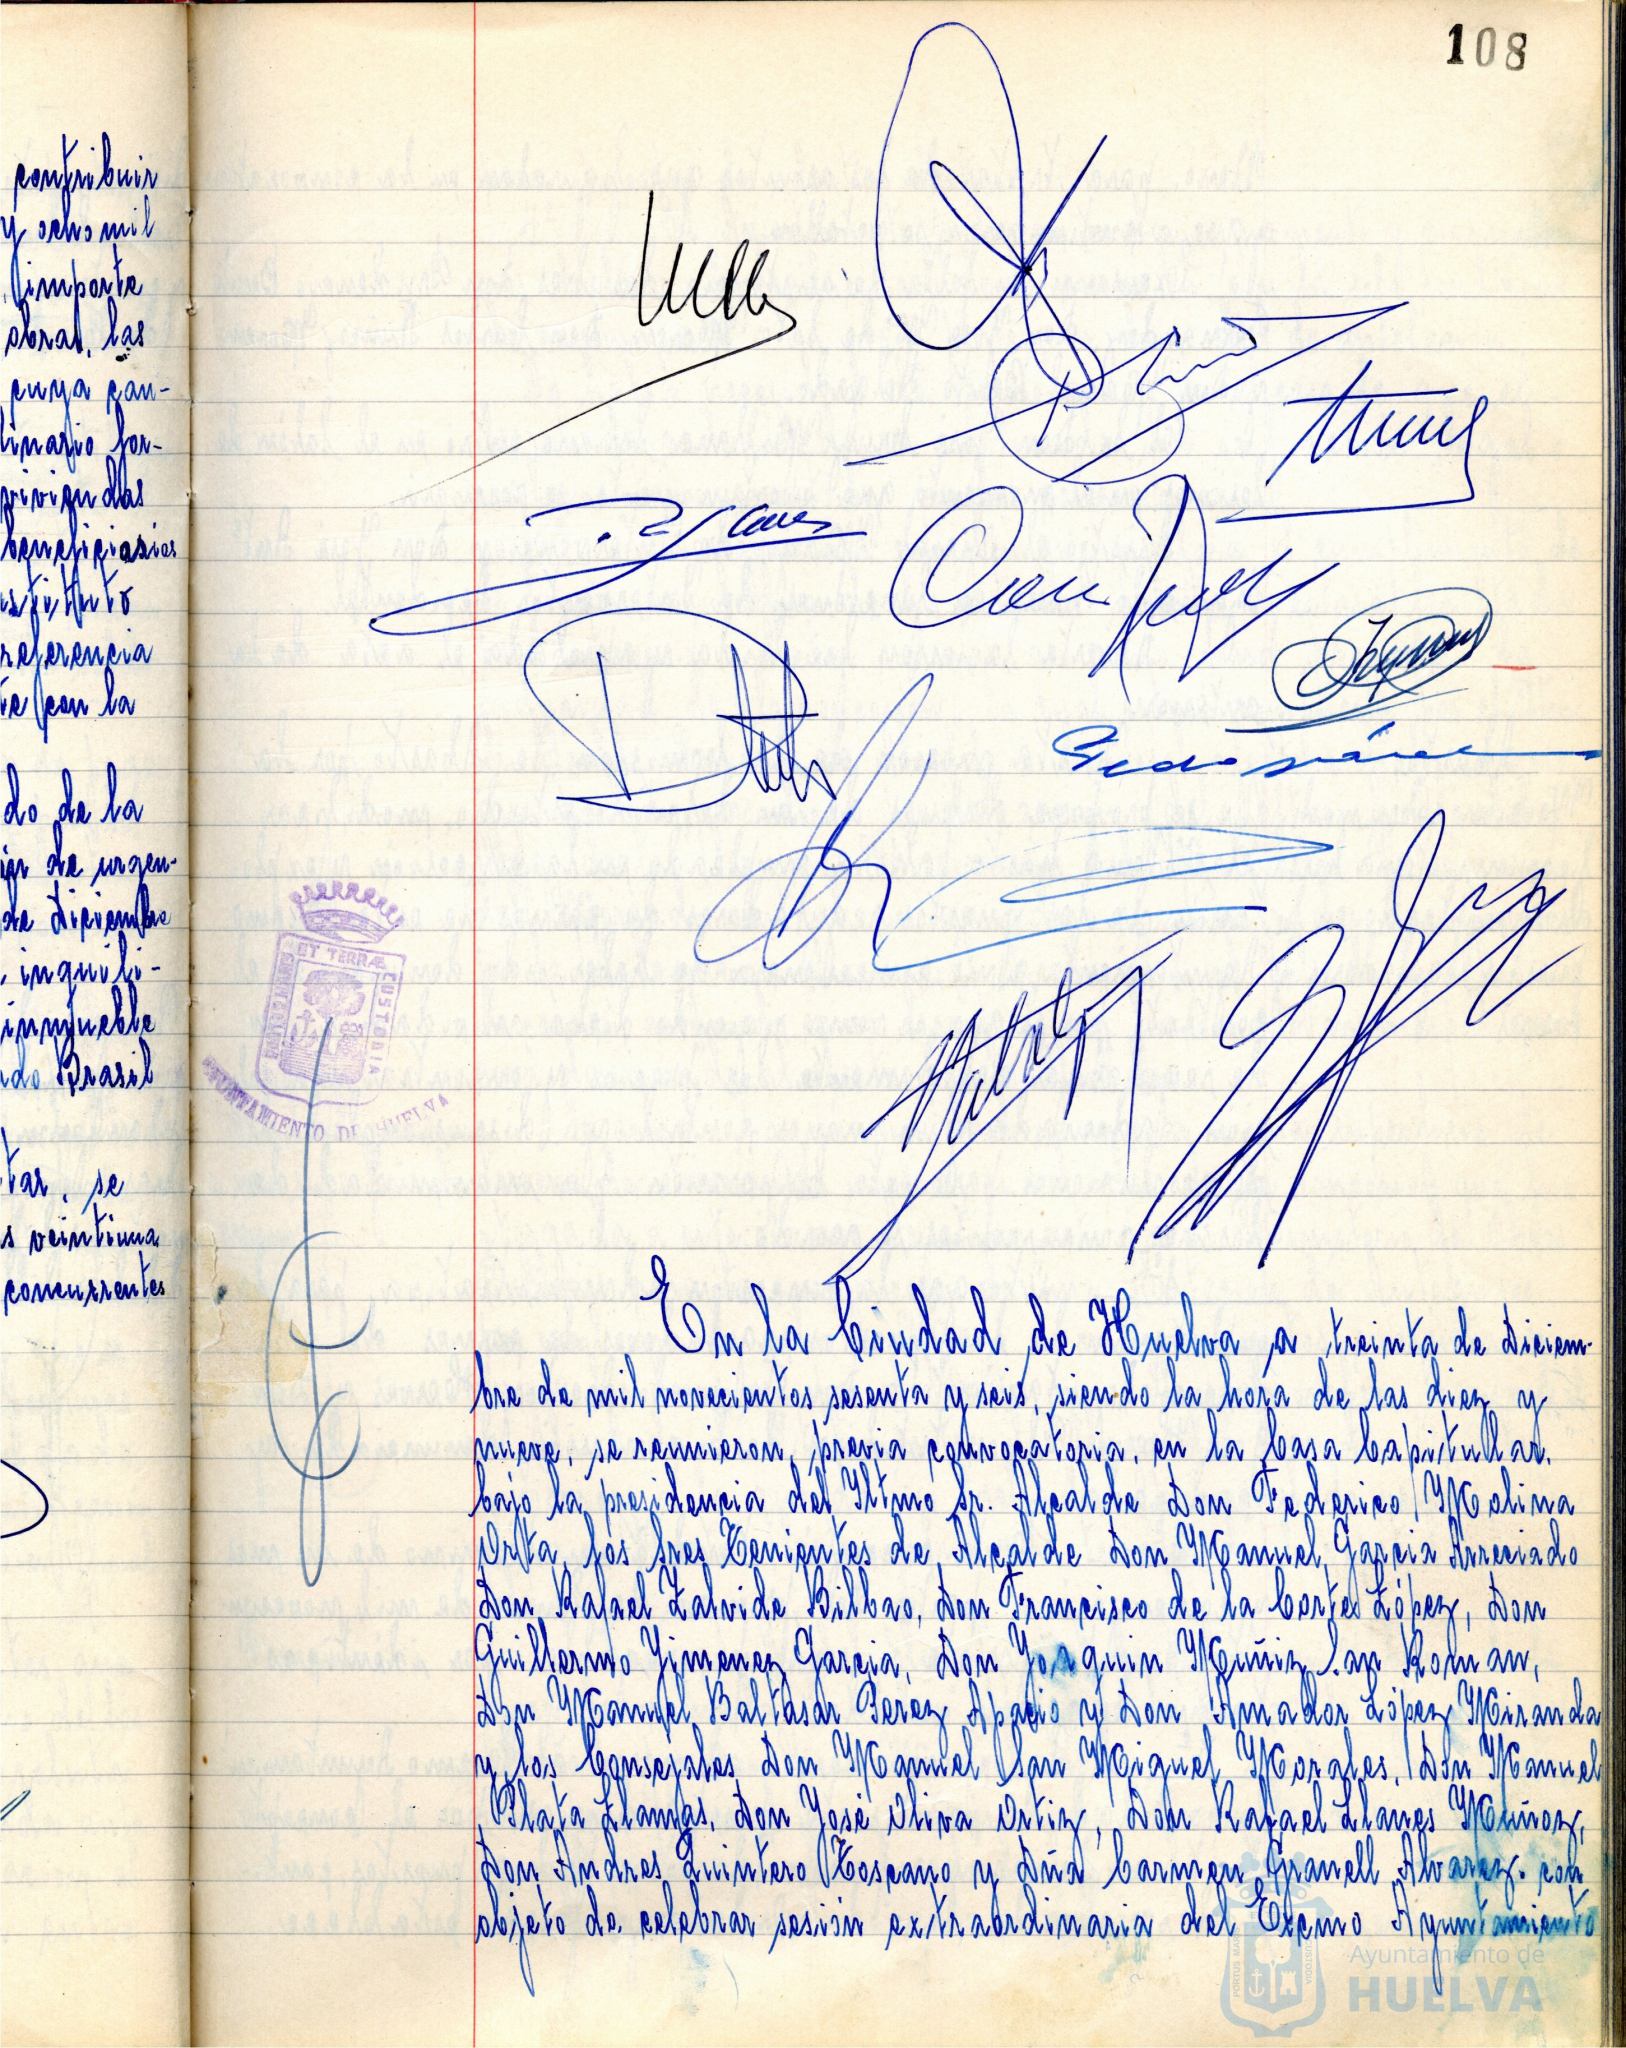 108
contribuir
y ocho mil
importe
obras, las
cuya can-
dinario for-
viviendas
beneficiarios
referencia
te con la
do de la
de urgen-
de Diciembre
inquili-
inmueble
Brasil
tar, se
s veintiuna
concurrentes
Pedro
PORTUS MARIS ET TERRAE CUSTODIA
AYUNTAMIENTO DE HUELVA
En la Ciudad de Huelva a treinta de Diciem-
bre de mil novecientos sesenta y seis, siendo la hora de las diez y
nueve, se reunieron, previa convocatoria, en la Casa Capitular,
bajo la presidencia del Yltmo Sr. Alcalde Don Federico Molina
Orta, los Sres Tenientes de Alcalde Don Manuel Garcia Arreciado
Don Rafael Zalvide Bilbao, Don Francisco de la Corte López, Don
Guillermo Yimenez Garcia, Don Yoaquin Muñiz San Roman,
Don Manuel Baltasar Perez Apacio y Don Amador López Miranda
y los Consejales Don Manuel San Miguel Morales, Don Manuel
Plata Llamas, Don José Oliva Ortiz, Don Rafael Llanes Muñoz,
Don Andres Quintero Toscano y Dña Carmen Granell Alvarez. con
objeto de celebrar sesión extraordinaria del Excmo Ayuntamiento
PORTUS MARIS CUSTODIA
Ayuntamiento de
HUELVA